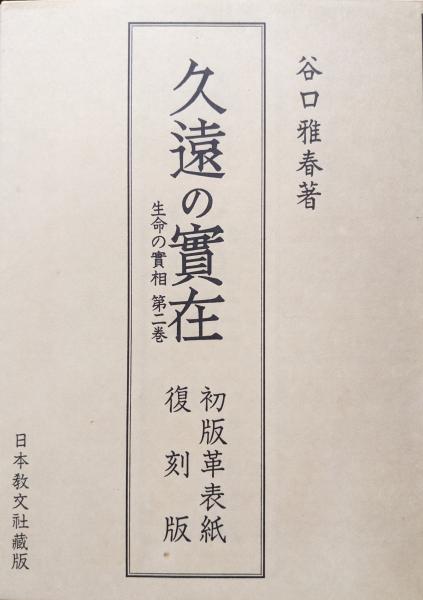 谷口雅春著
久遠の實在
生命の實相 第二巻
初版革表紙
復刻版
日本教文社藏版